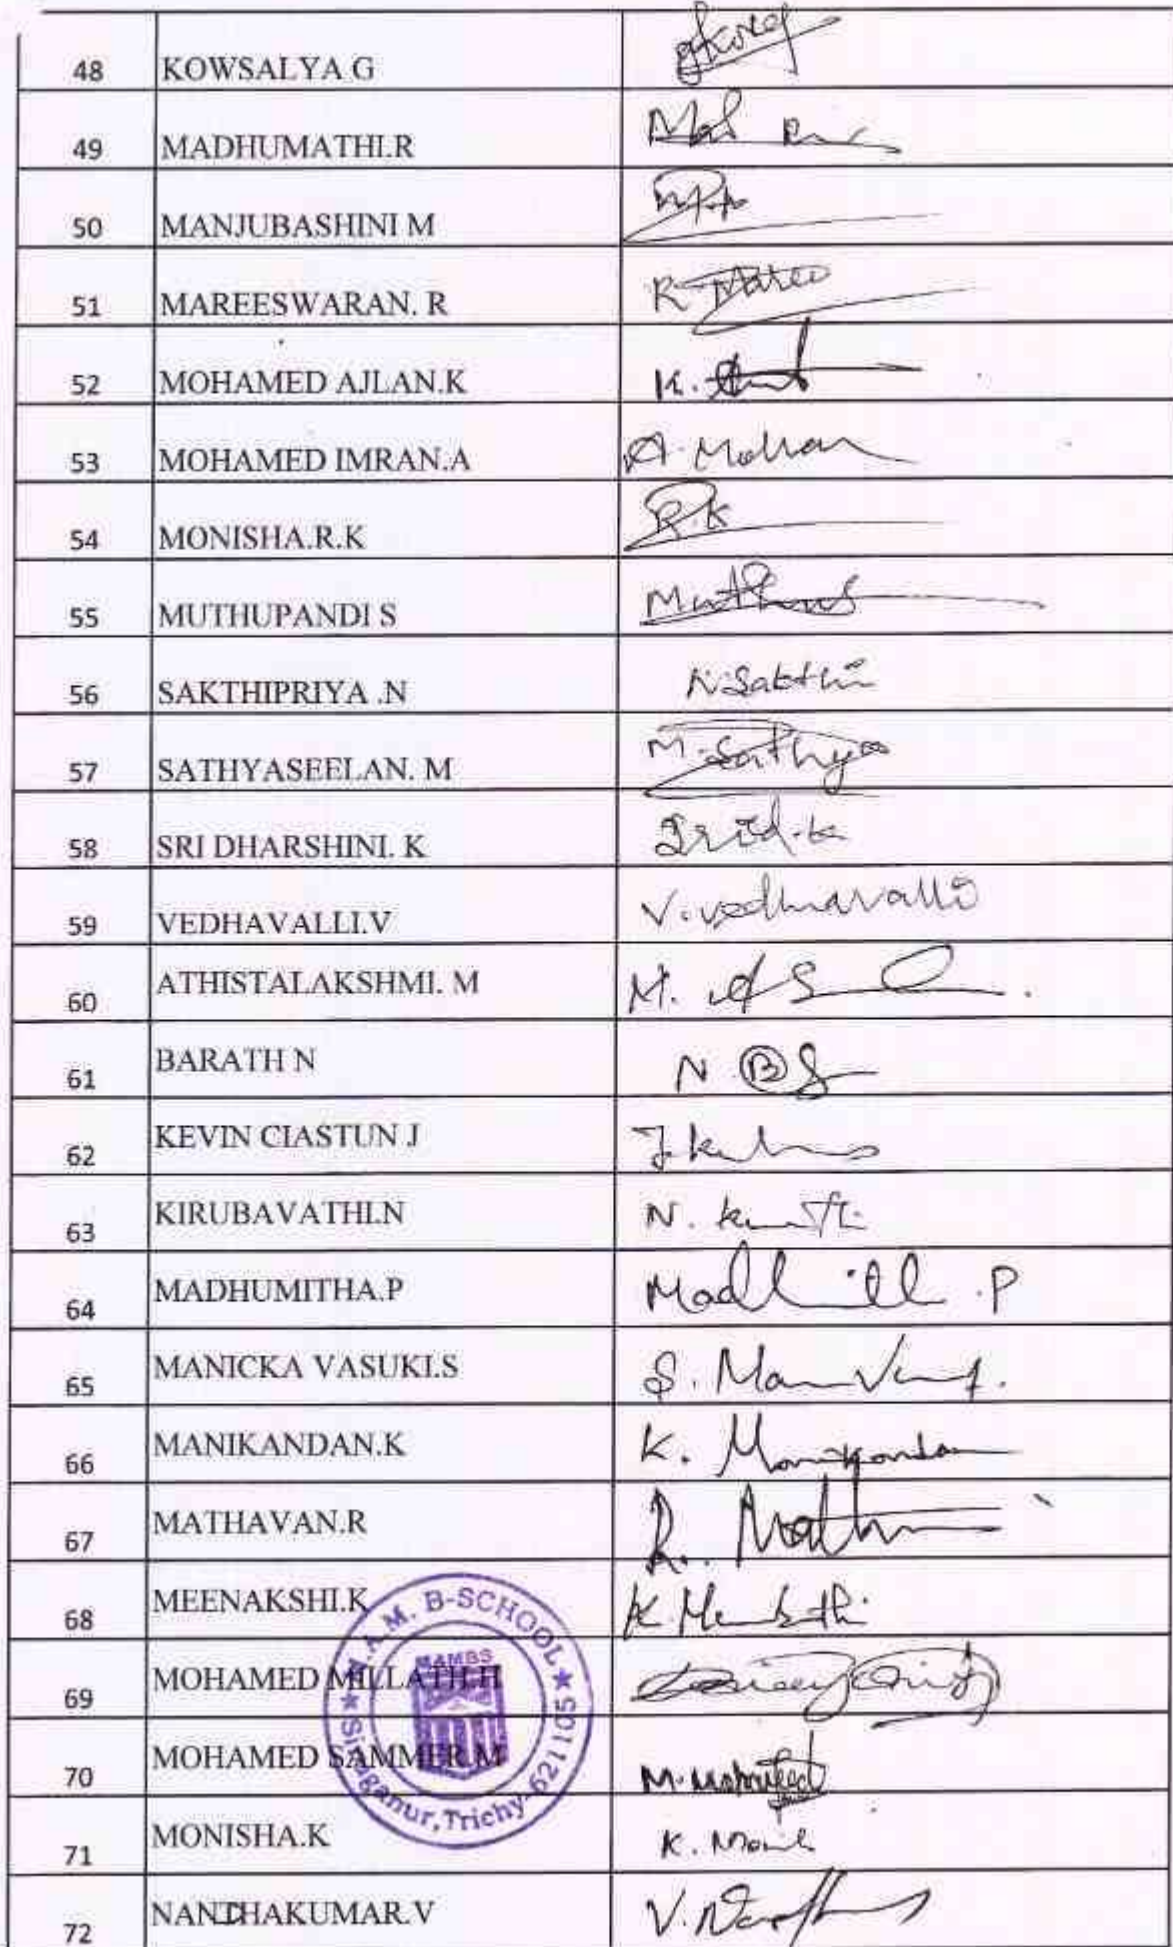 48 KOWSALYA G
49 MADHUMATHI.R
50 MANJUBASHINI M
51 MAREESWARAN. R R.
52 MOHAMED AJLAN.K K.
53 MOHAMED IMRAN.A A.
54 MONISHA.R.K R.K
55 MUTHUPANDI S
56 SAKTHIPRIYA .N N.Sakthi
57 SATHYASEELAN. M M.Sathya
58 SRI DHARSHINI. K Srid.k
59 VEDHAVALLI.V V.vedhavalli
60 ATHISTALAKSHMI. M M.
61 BARATH N N B
62 KEVIN CIASTUN J
63 KIRUBAVATHI.N N.
64 MADHUMITHA.P P
65 MANICKA VASUKI.S S.
66 MANIKANDAN.K K. Manikandan
67 MATHAVAN.R R.
68 MEENAKSHI.K K.
69 MOHAMED MILLATH.H
70 MOHAMED SAMMER.M M.
71 MONISHA.K K.
72 NANDHAKUMAR.V V.
M.A.M. B-SCHOOL
MAMBS
Siruganur, Trichy-621105